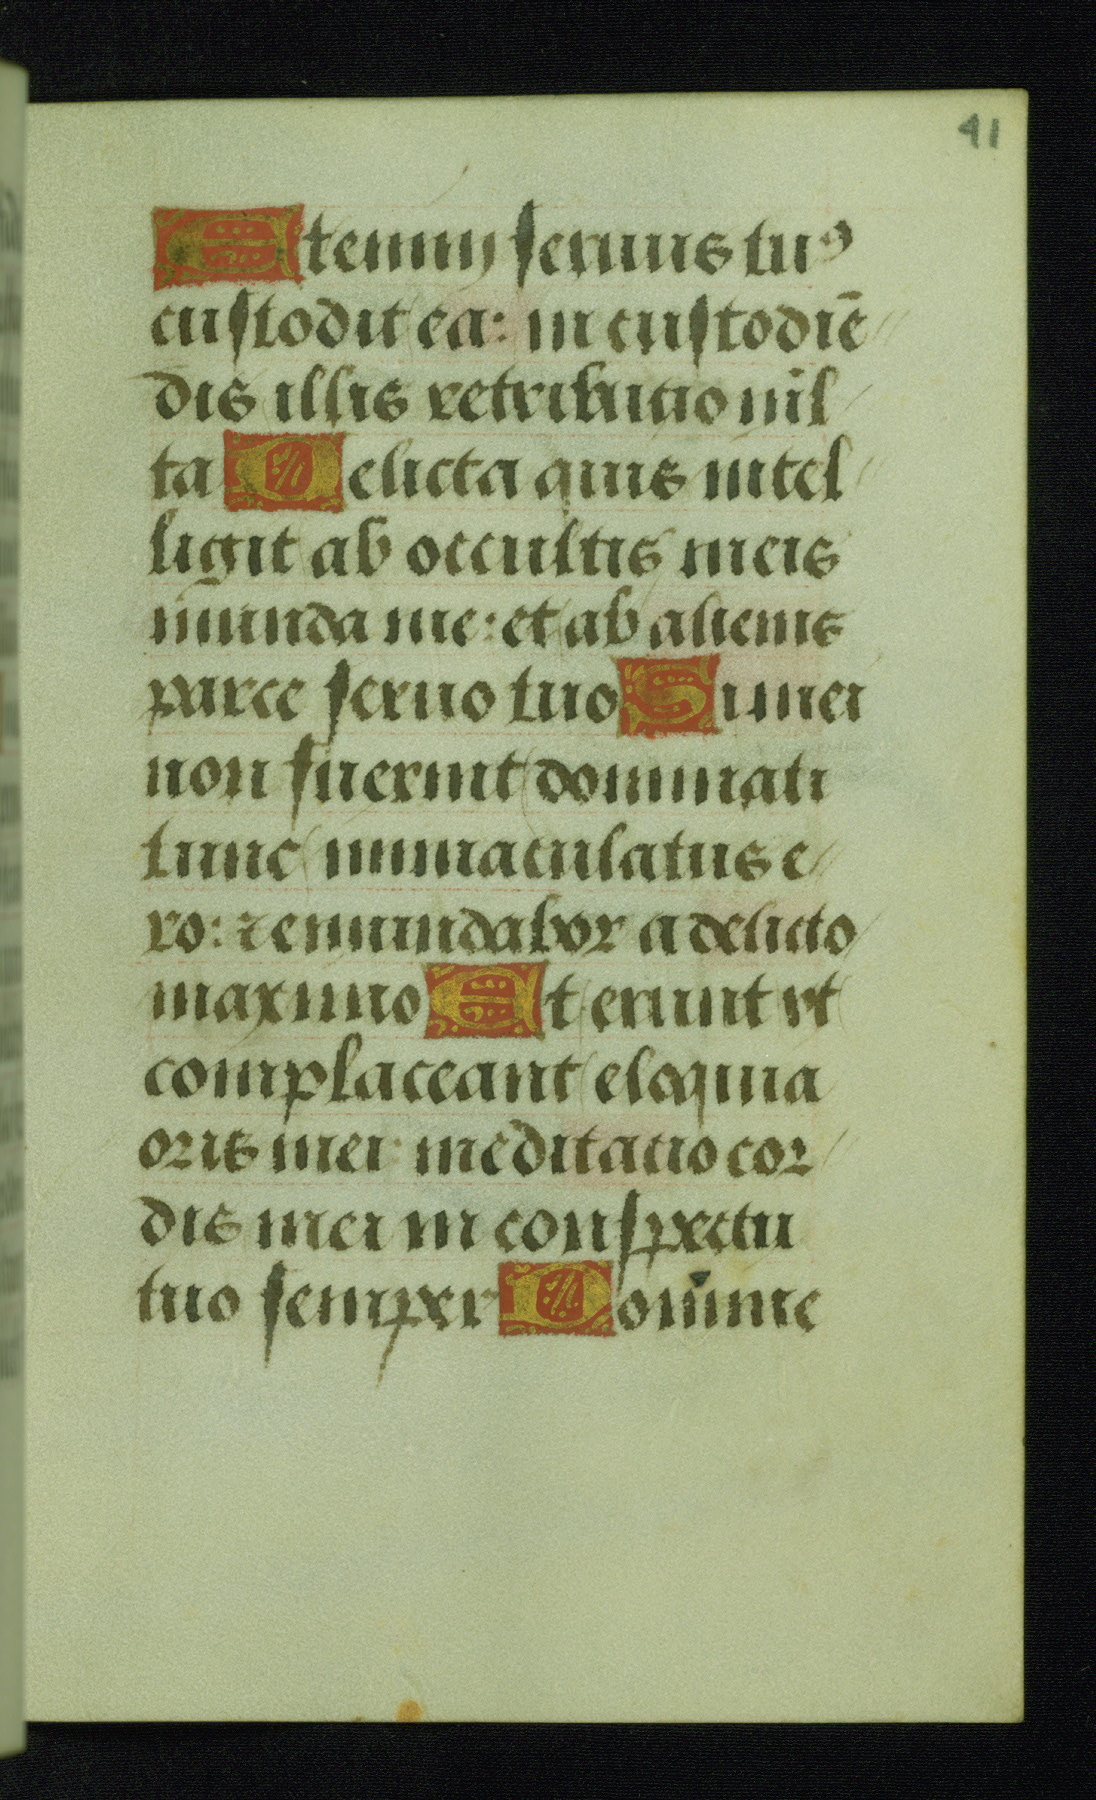 41
Etenim seruus tuꝰ
custodit ea: in custodiē
dis illis retributio ml̄
ta Delicta quis intel
ligit ab occultis meis
munda me: et ab alienis
parce seruo tuo Si mei
non fuerint dominati
tunc immaculatus e
ro: ⁊ emundabor a delicto
maximo Et erunt vt
complaceant eloquia
oris mei: meditatio cor
dis mei in conspectu
tuo semper Domine